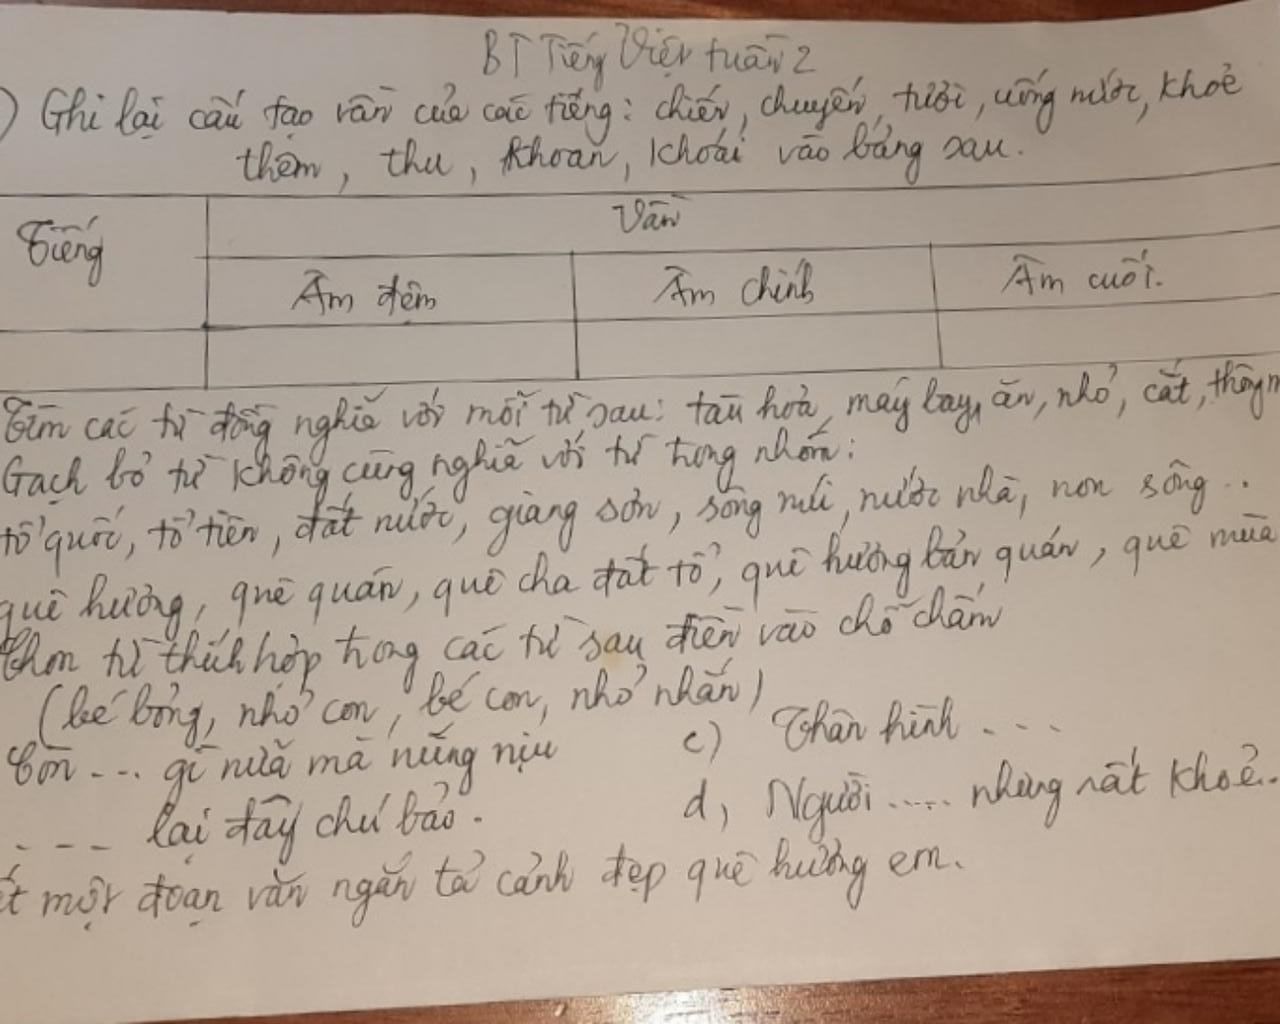 BT Tiếng Việt tuần 2
) Ghi lại cấu tạo vần của các tiếng: chiến, chuyến, tười, uống nước, khoẻ
thêm, thu, khoan, khoái vào bảng sau.
Tiếng
Vần
Âm đệm Âm chính Âm cuối.
Tìm các từ đồng nghĩa với mỗi từ sau: tàu hoả, máy bay, ăn, nhỏ, cắt, thông m
Gạch bỏ từ không cùng nghĩa với từ trong nhóm:
tổ quốc, tổ tiên, đất nước, giang sơn, sông núi, nước nhà, non sông..
quê hương, quê quán, quê cha đất tổ, quê hương bản quán, quê mùa
Chọn từ thích hợp trong các từ sau điền vào chỗ chấm
(bé bỏng, nhỏ con, bé con, nhỏ nhắn)
Còn ... gì nữa mà nũng nịu c) Thân hình ...
... lại đây chú bảo. d, Người ..... nhưng rất khoẻ.
ết một đoạn văn ngắn tả cảnh đẹp quê hương em.